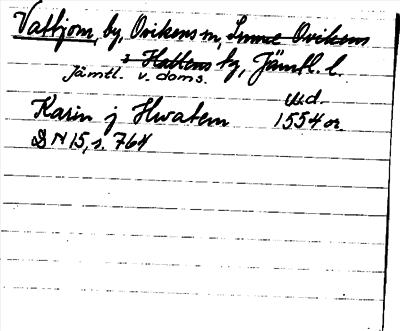 Vattjom, by, Ovikens sn, Sunne Ovikens
s Hallens ty, Jämtl. l.
Jämtl. v. doms.
u.d.
Karin j Hwatem 1554 or.
DN 15, s. 764